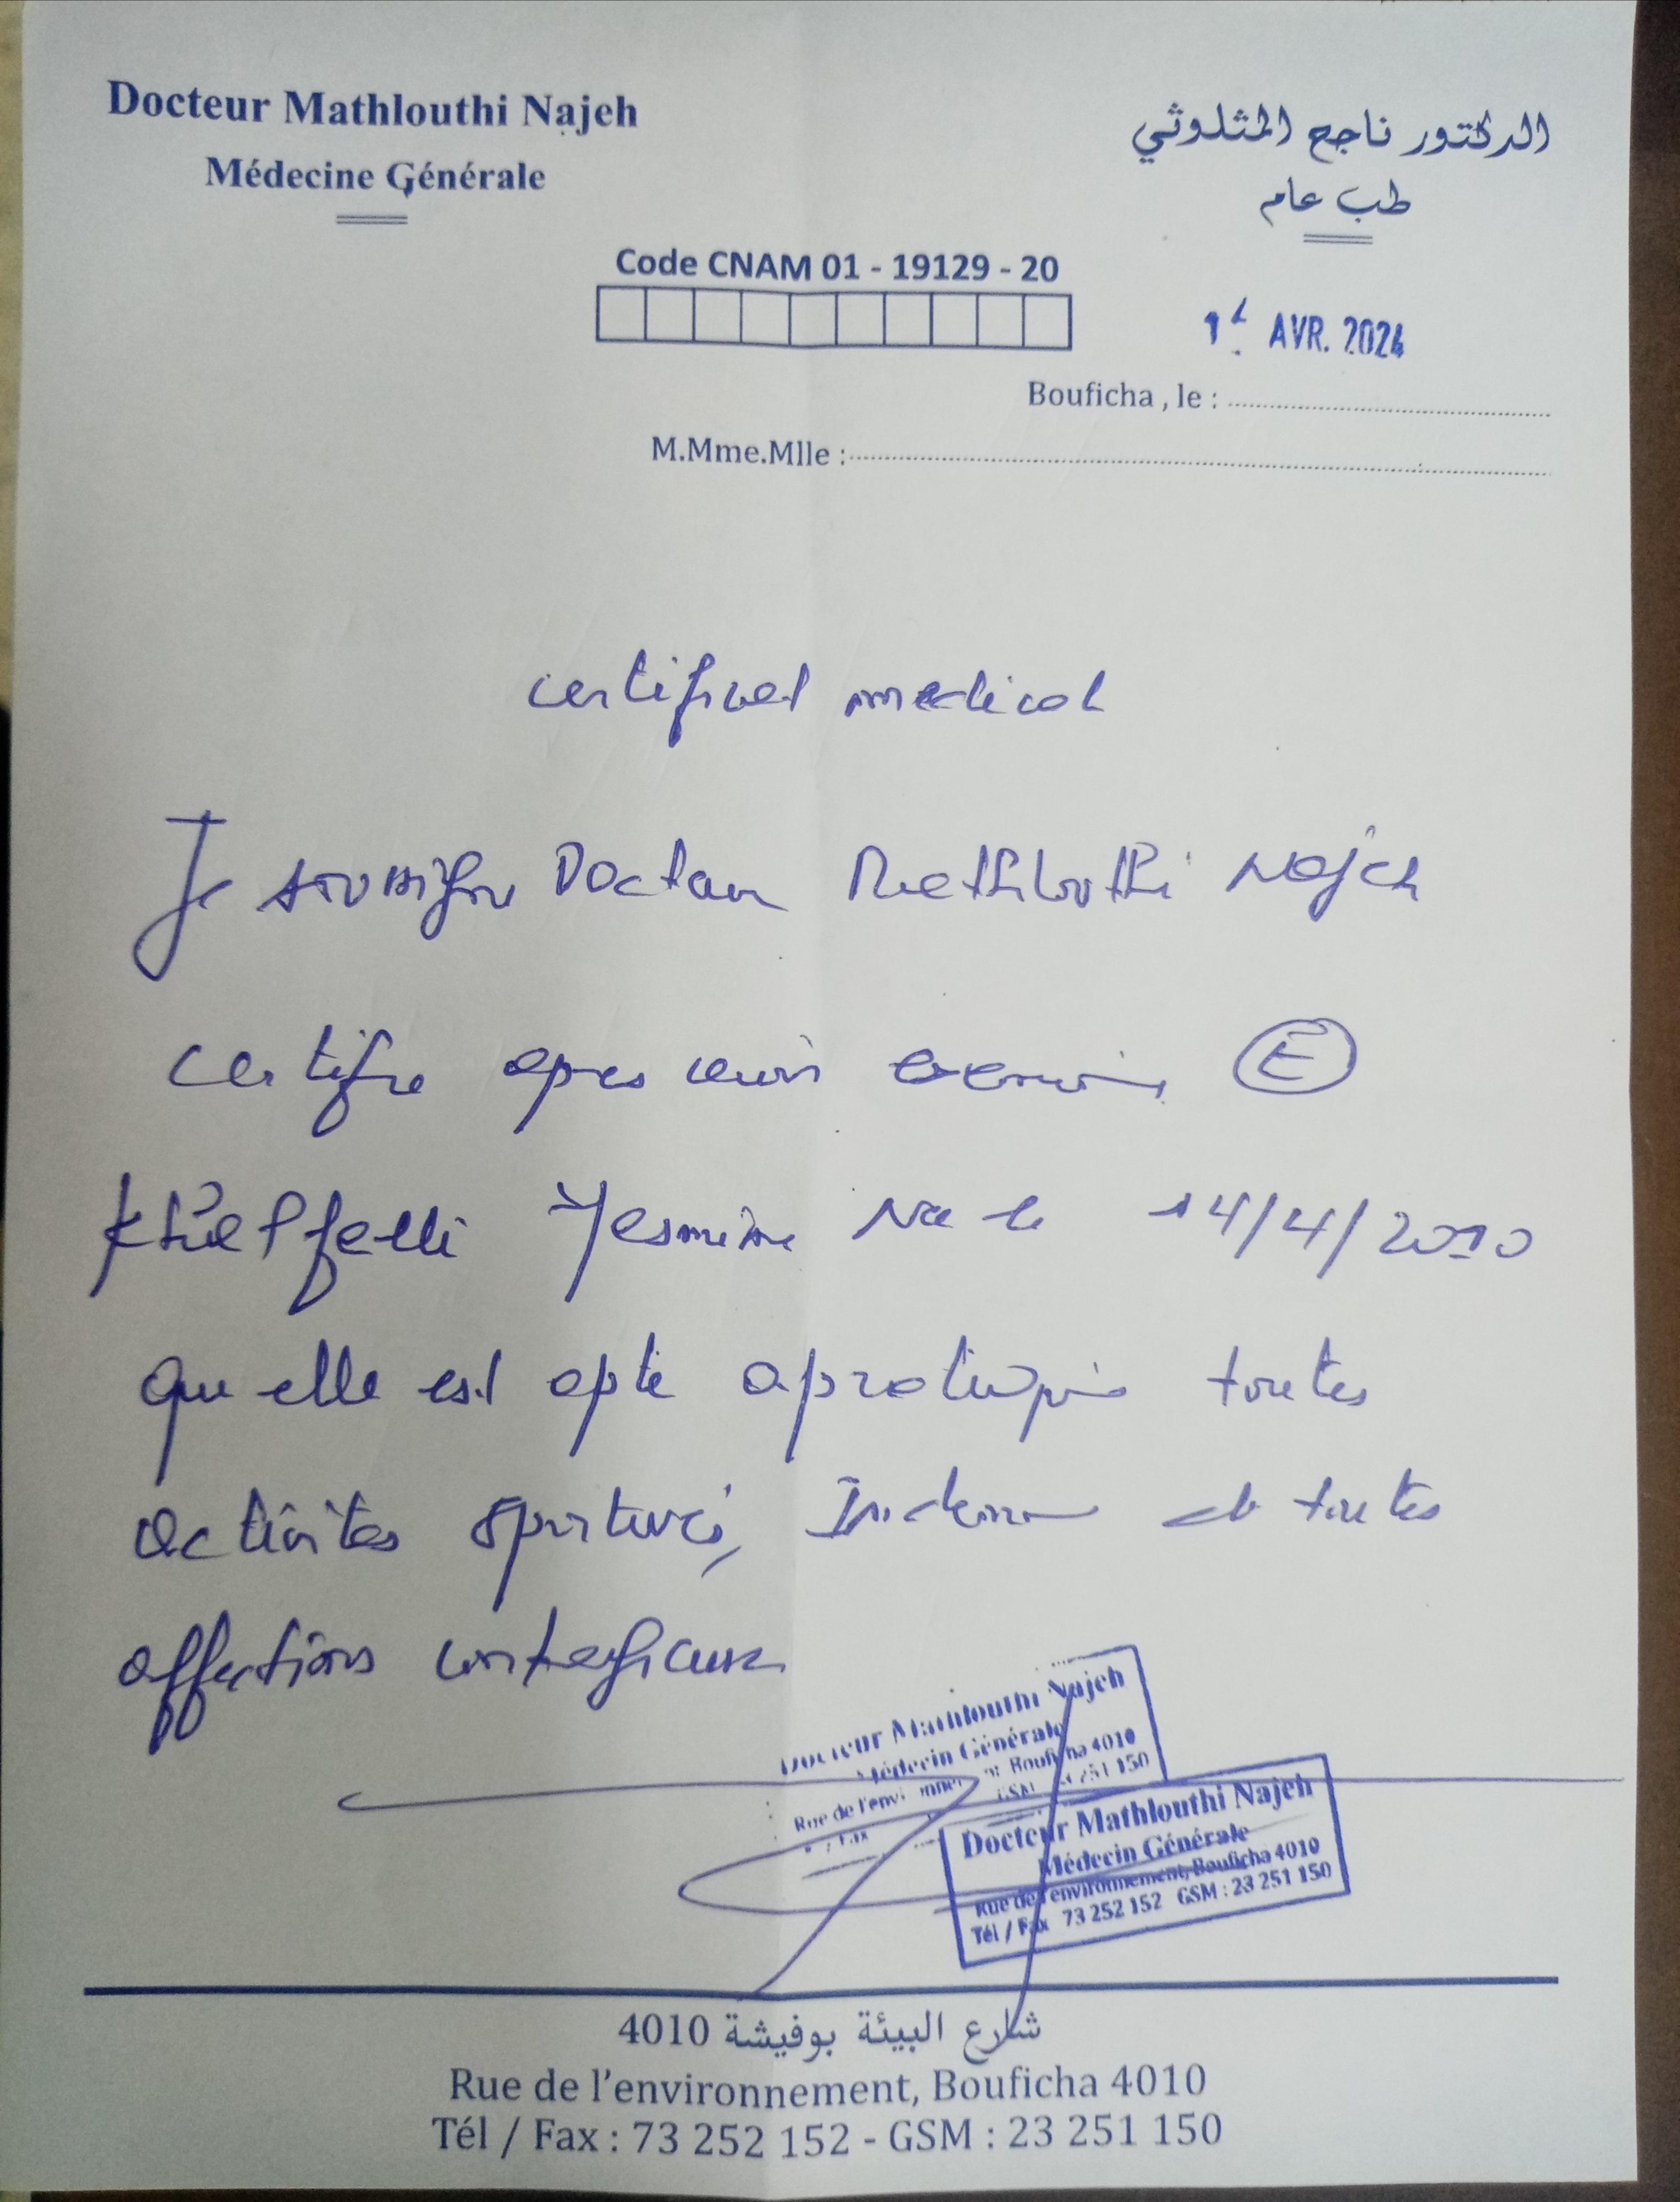 Docteur Mathlouthi Najeh
Médecine Générale
الدكتور ناجح المثلوثي
طب عام
Code CNAM 01 - 19129 - 20
AVR. 2024
Bouficha , le :
M.Mme.Mlle :
certificat medical
Je soussigne Docteur Mathlouthi Najeh
certifie apres avoir examine E
Yesmine Nee le 14/4/2010
qu elle est apte a pratiquer toutes
activites sportives, Indemne de toutes
affections contagieuse
Docteur Mathlouthi Najeh
Médecin Générale
Rue de l'environnement, Bouficha 4010
GSM : 23 251 150
Docteur Mathlouthi Najeh
Médecin Générale
Rue de l'environnement, Bouficha 4010
Tél / Fax 73 252 152 GSM : 23 251 150
شارع البيئة بوفيشة 4010
Rue de l'environnement, Bouficha 4010
Tél / Fax : 73 252 152 - GSM : 23 251 150